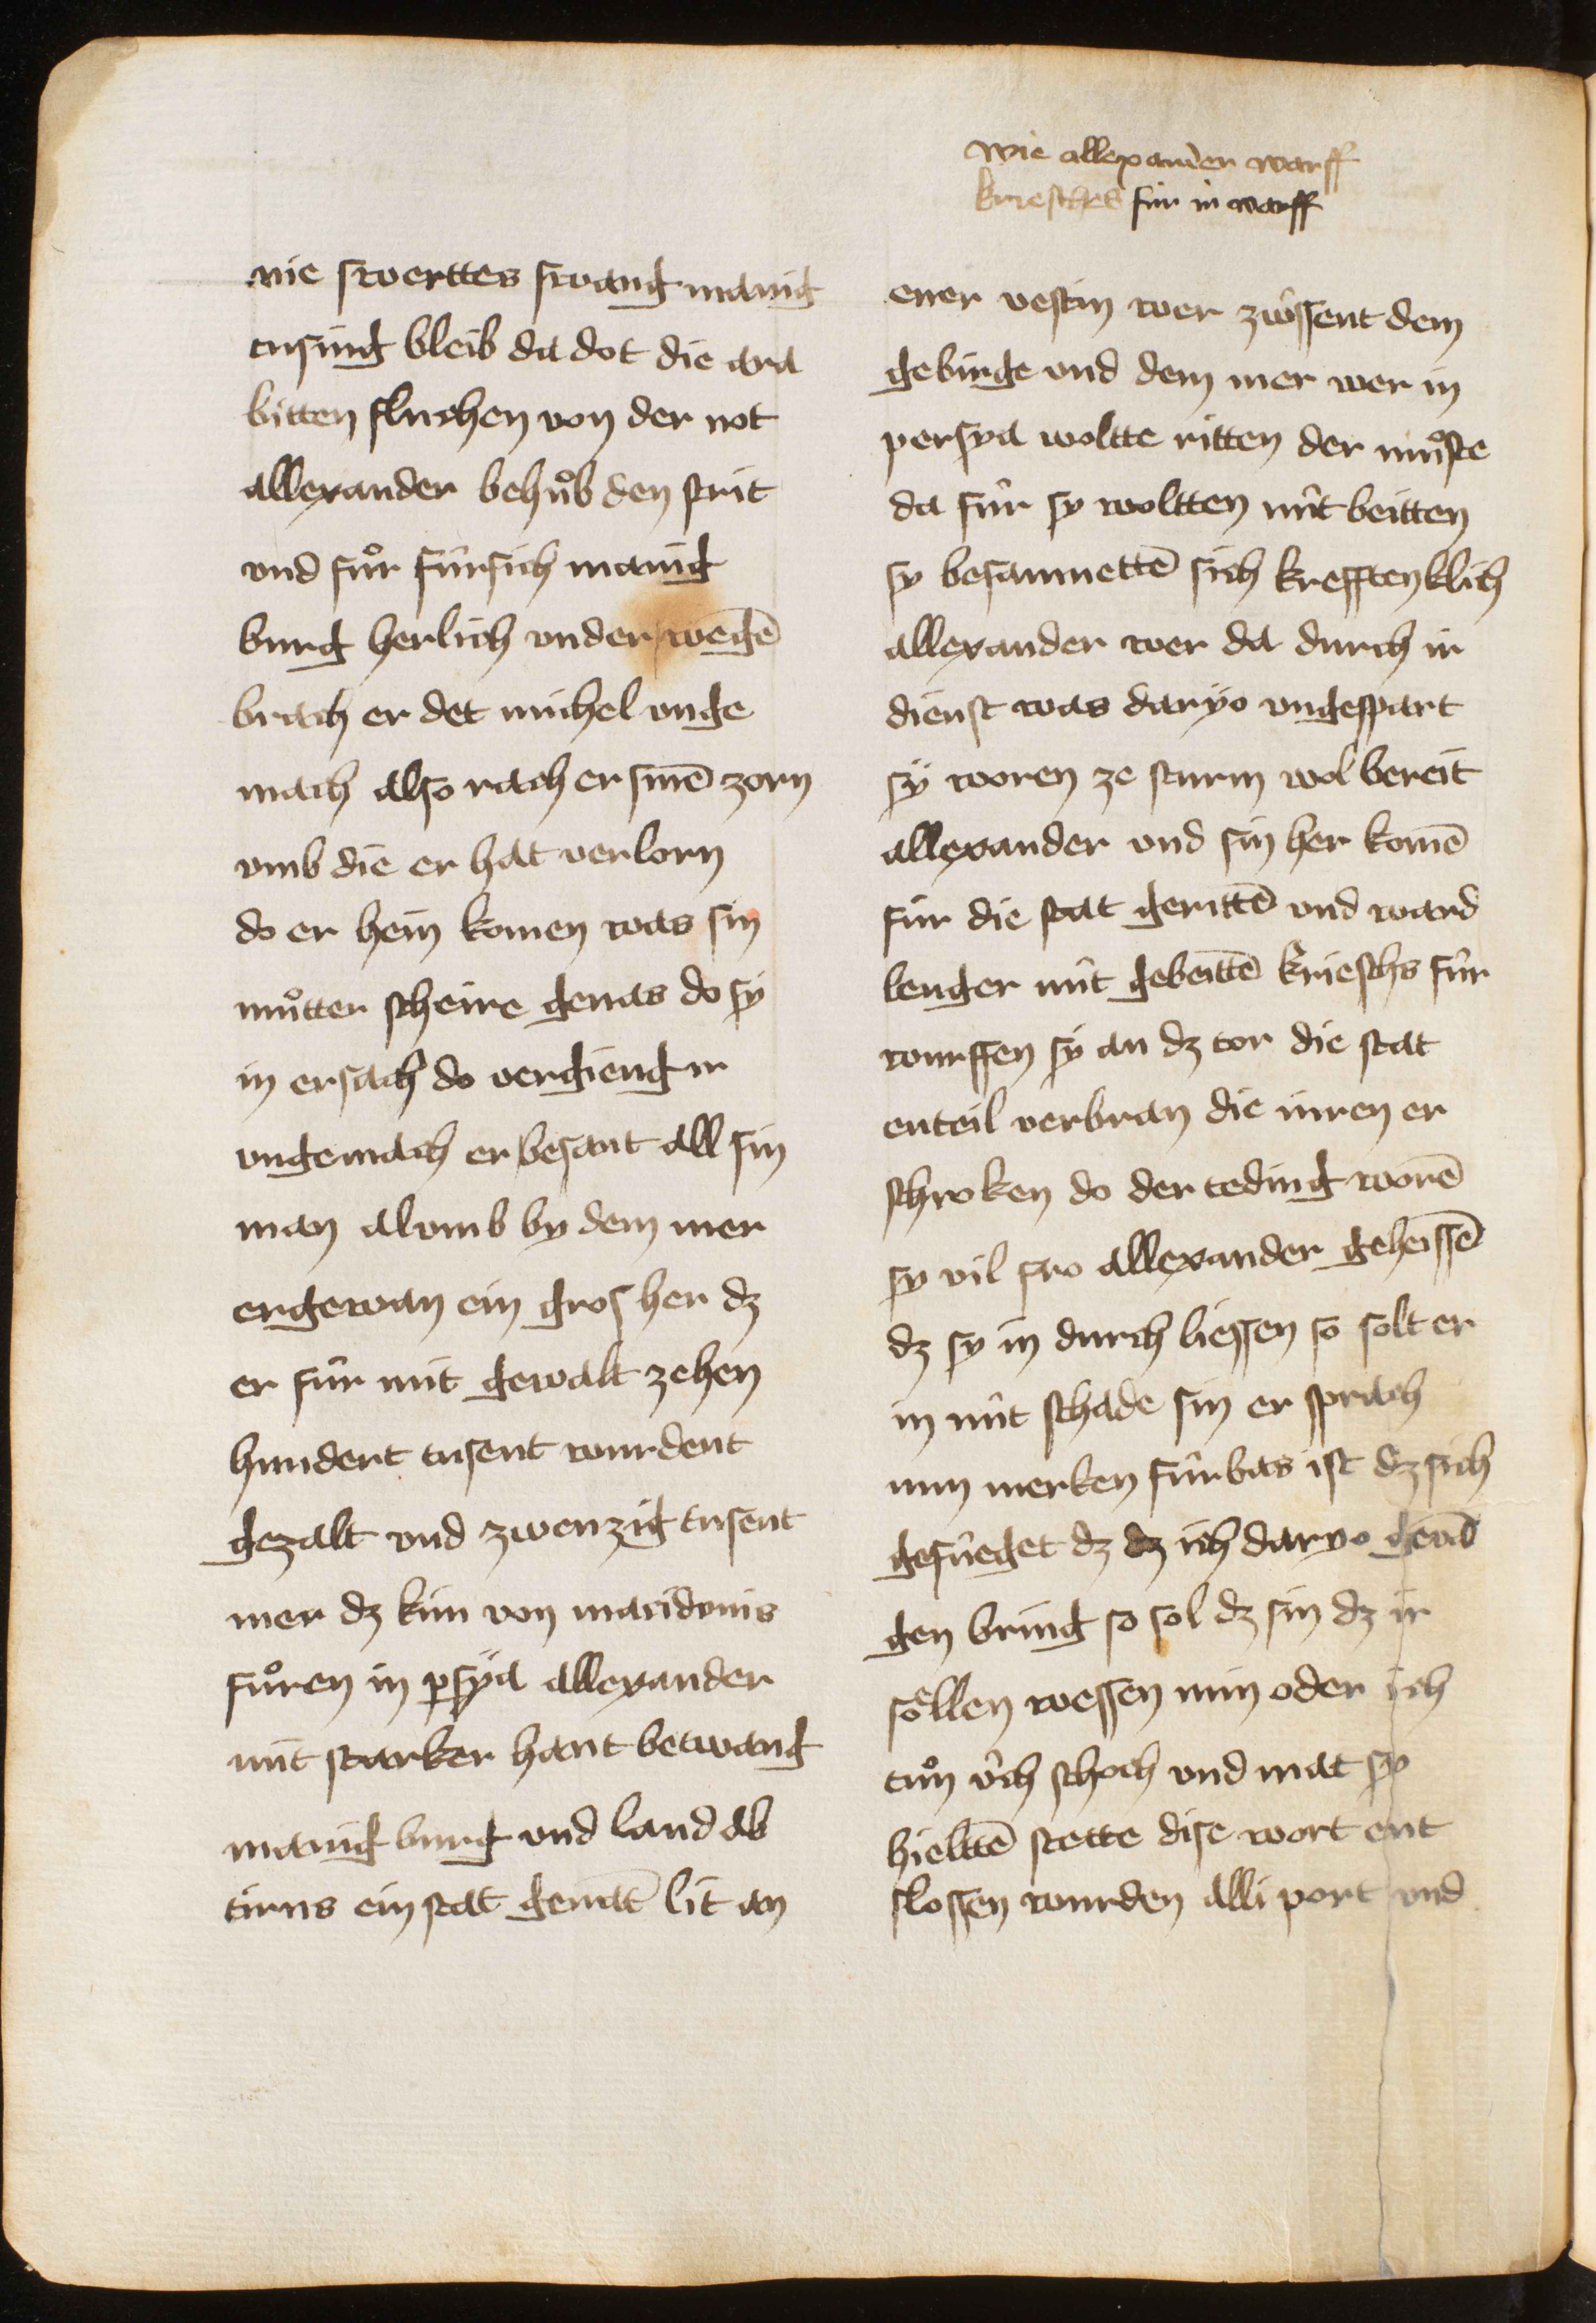 wie allexander warff
krieschs für in warff
nie swerttes swang manig
tusing bleib da dot die ara
bitten fluchen von der not
allexander behuͦb den strit
vnd fuͦr fúrsich manig
burg herlich vnder wegē
brach er det michel vnge
mach also rach er sinē zorn
vmb die er hat verlorn
do er hein komen was sin
muͦtter scheire genas do sy
in ersach do vergieng ir
vngemach er besant all sin
man al vmb by dem mer
er gewan ein gros her dz
er fúr mit gewalt zehen
hundert tusent wurdent
gezalt vnd zwenzig tusent
mer dz kún von macidonis
fuͦren in psÿa allexander
mit starker hant betwang
manig burg vnd land ab
tirus ein stat genāt lit an
ener vestin wer zwússent dem
gebirge vnd dem mer wer in
persya woltte ritten der muͦste
da fúr sy woltten nút beitten
sy besammettē sich krefftenklich
allexander wer da durch ir
dienst was daryo vngespart
sÿ woren ze sturm wol bereit
allexander vnd sin her komē
für die stat gerittē vnd ward
lenger nút gebeittē krieschs fúr
wurffen sÿ an dz tor die stat
enteil verbran die inren er
schroken do der teding worē
sy vil fro allexander geheissē
dz sy in durch liessen so solt er
in nút schade sin er sprach
nun merken fúrbas ist dz sich
gefúeget dz dz ich daryo
gen bring so sol dz sin dz ir
soͤllen wessen min oder ich
tuͦn v́ch schoch vnd mat sy
hielttē stette dise wort ent
slossen wurden alli port vnd